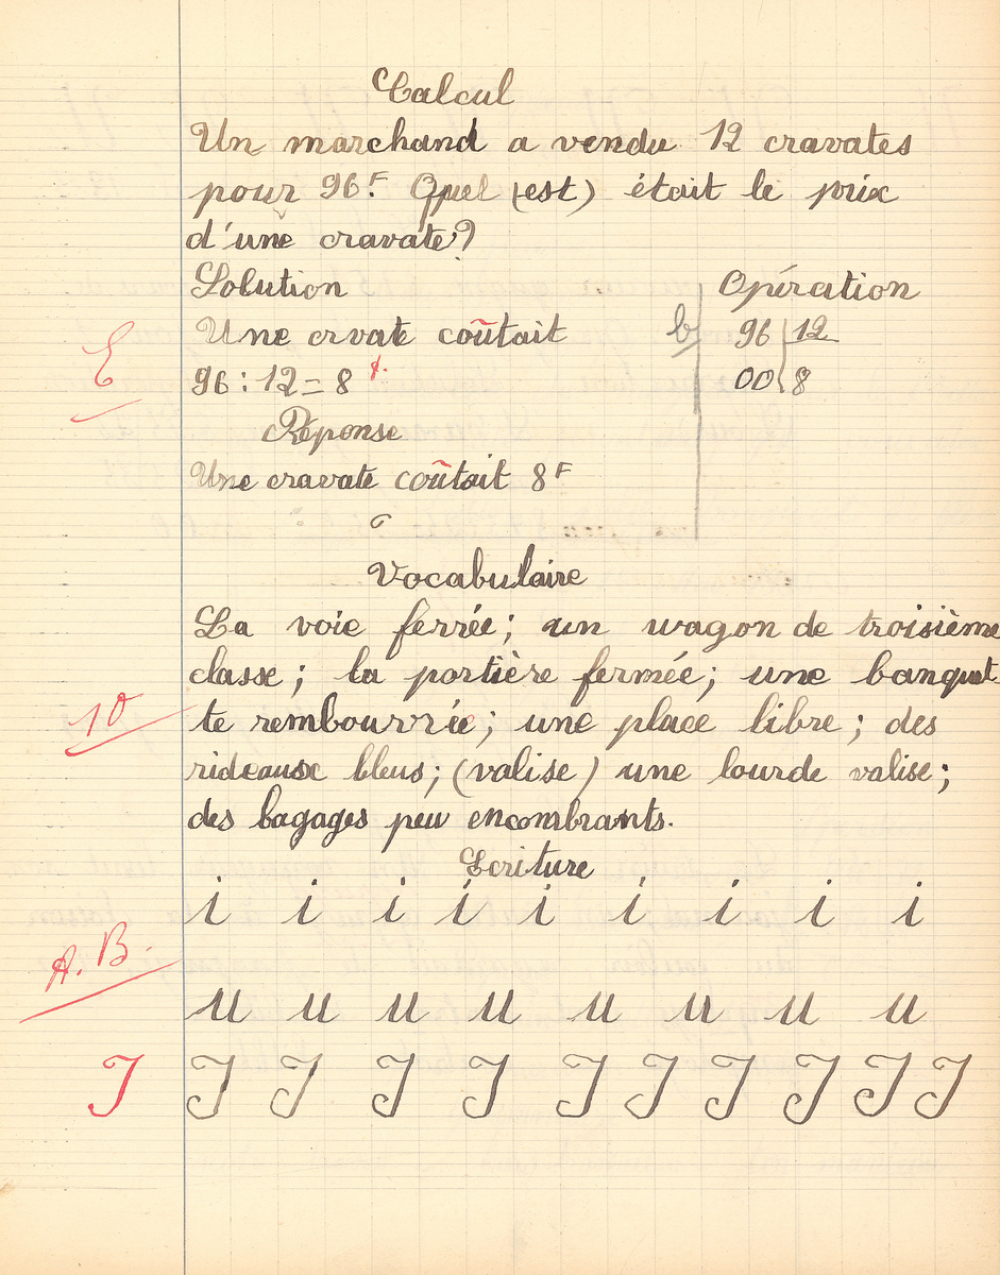 Calcul
Un marchand a vendu 12 cravates
pour 96F. Quel (est) était le prix
d'une cravate?
Solution Opération
Une crvate coûtait b 96 12
E 96 : 12 = 8 f. 00 8
Réponse
Une cravate coûtait 8F
Vocabulaire
La voie ferrée; un wagon de troisième
classe; la portière fermée; une banquet
10 te rembourrée; une place libre; des
rideaux bleus; (valise) une lourde valise;
des bagages peu encombrants.
Ecriture
i i i i i i i i i
A.B.
u u u u u u u u
I I I I I I I I I I I